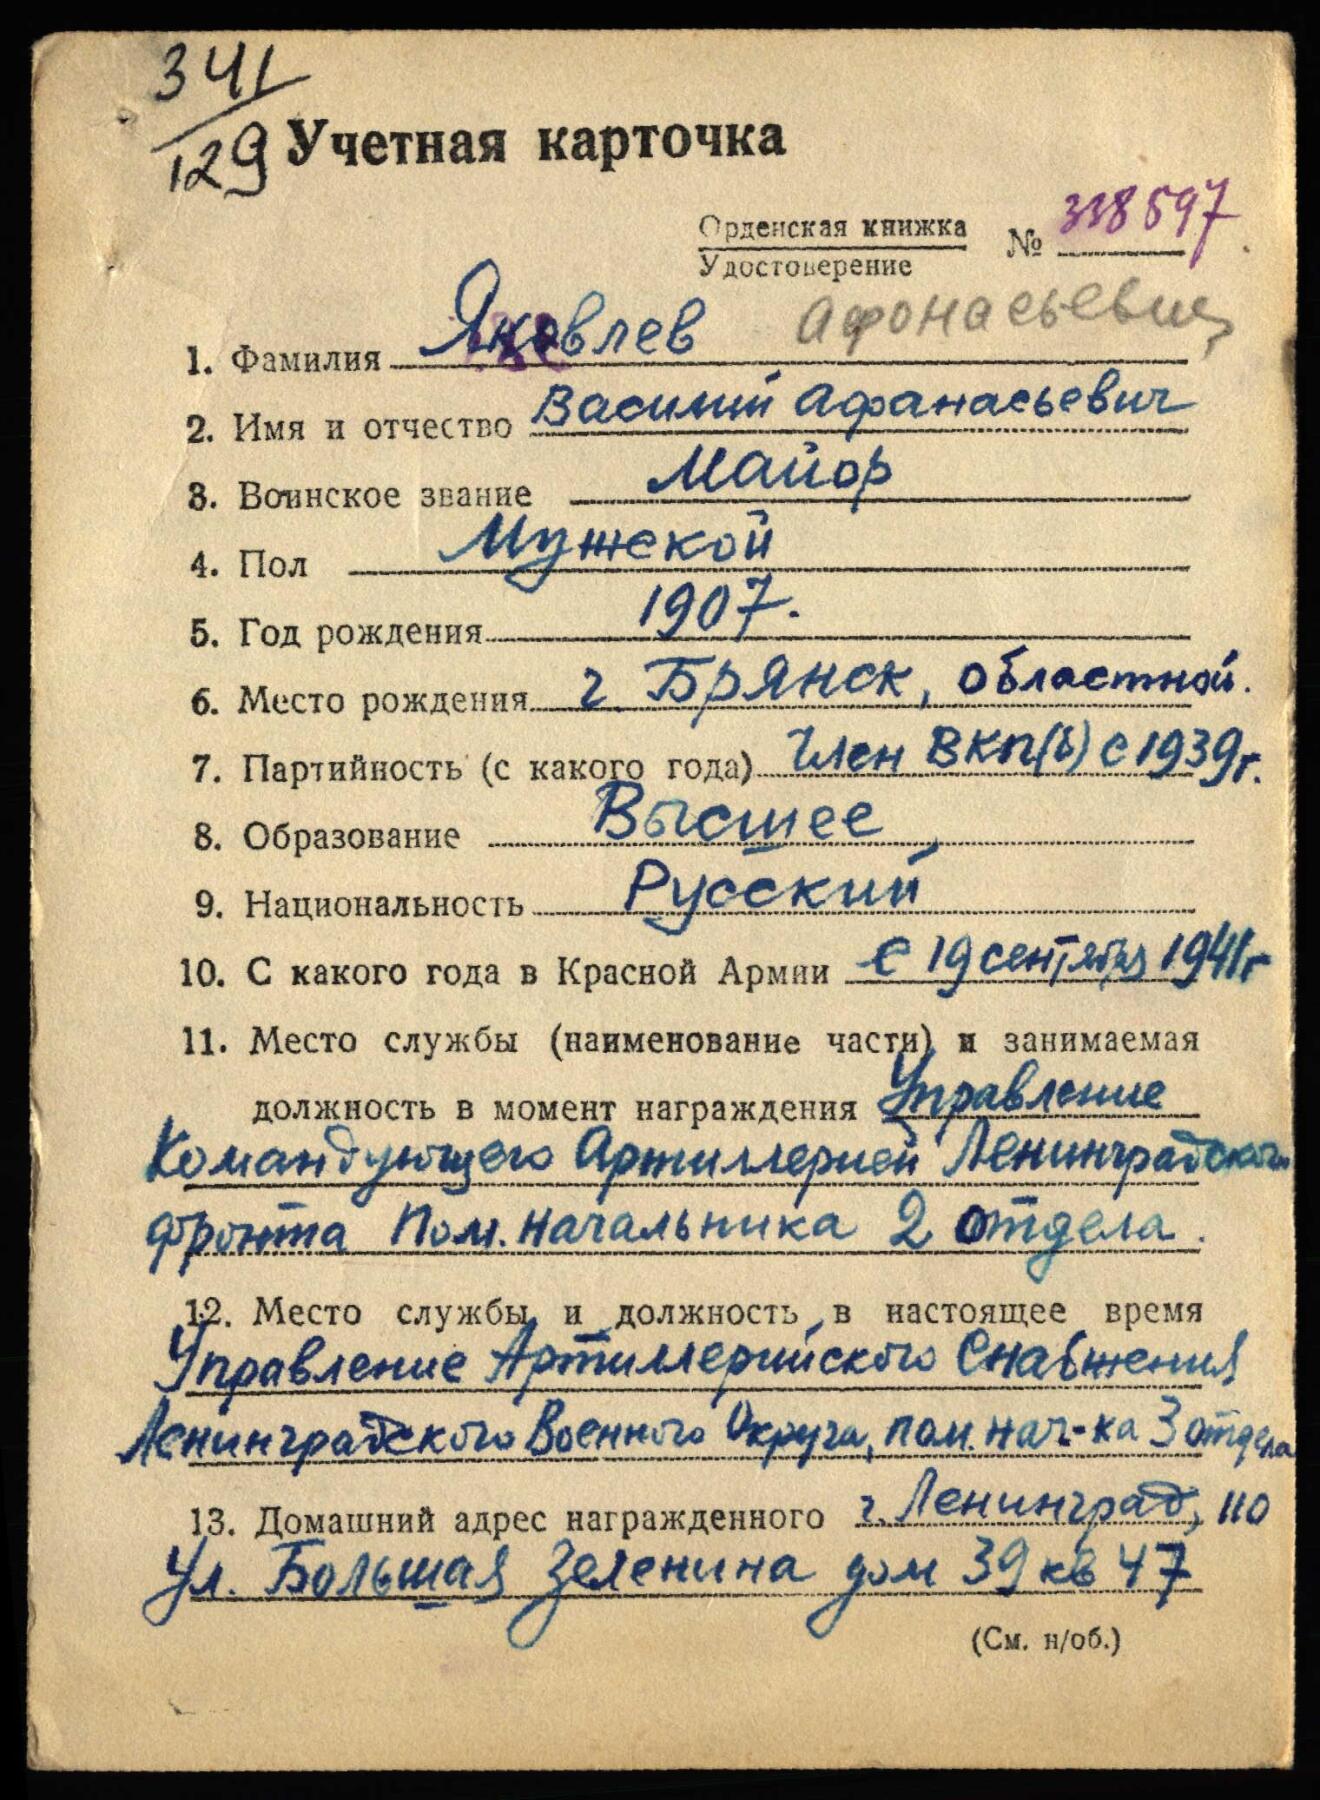 341
129
Учетная карточка
Орденская книжка № 338597
Удостоверение
Афонасьевич
1. Фамилия Яковлев
2. Имя и отчество Василий Афанасьевич
3. Воинское звание Майор
4. Пол Мужской
5. Год рождения 1907.
6. Место рождения г. Брянск, областной.
7. Партийность (с какого года) Член ВКП(б) с 1939г.
8. Образование Высшее
9. Национальность Русский
10. С какого года в Красной Армии с 19 сентября 1941г
11. Место службы (наименование части) и занимаемая
должность в момент награждения Управление
Командующего Артиллерией Ленинградского
фронта Пом. начальника 2 отдела.
12. Место службы и должность в настоящее время
Управление Артиллерийского Снабжения
Ленинградского Военного Округа, пом. нач-ка 3 отдела
13. Домашний адрес награжденного г. Ленинград, 110
Ул. Большая Зеленина дом 39 кв 47
(См. н/об.)